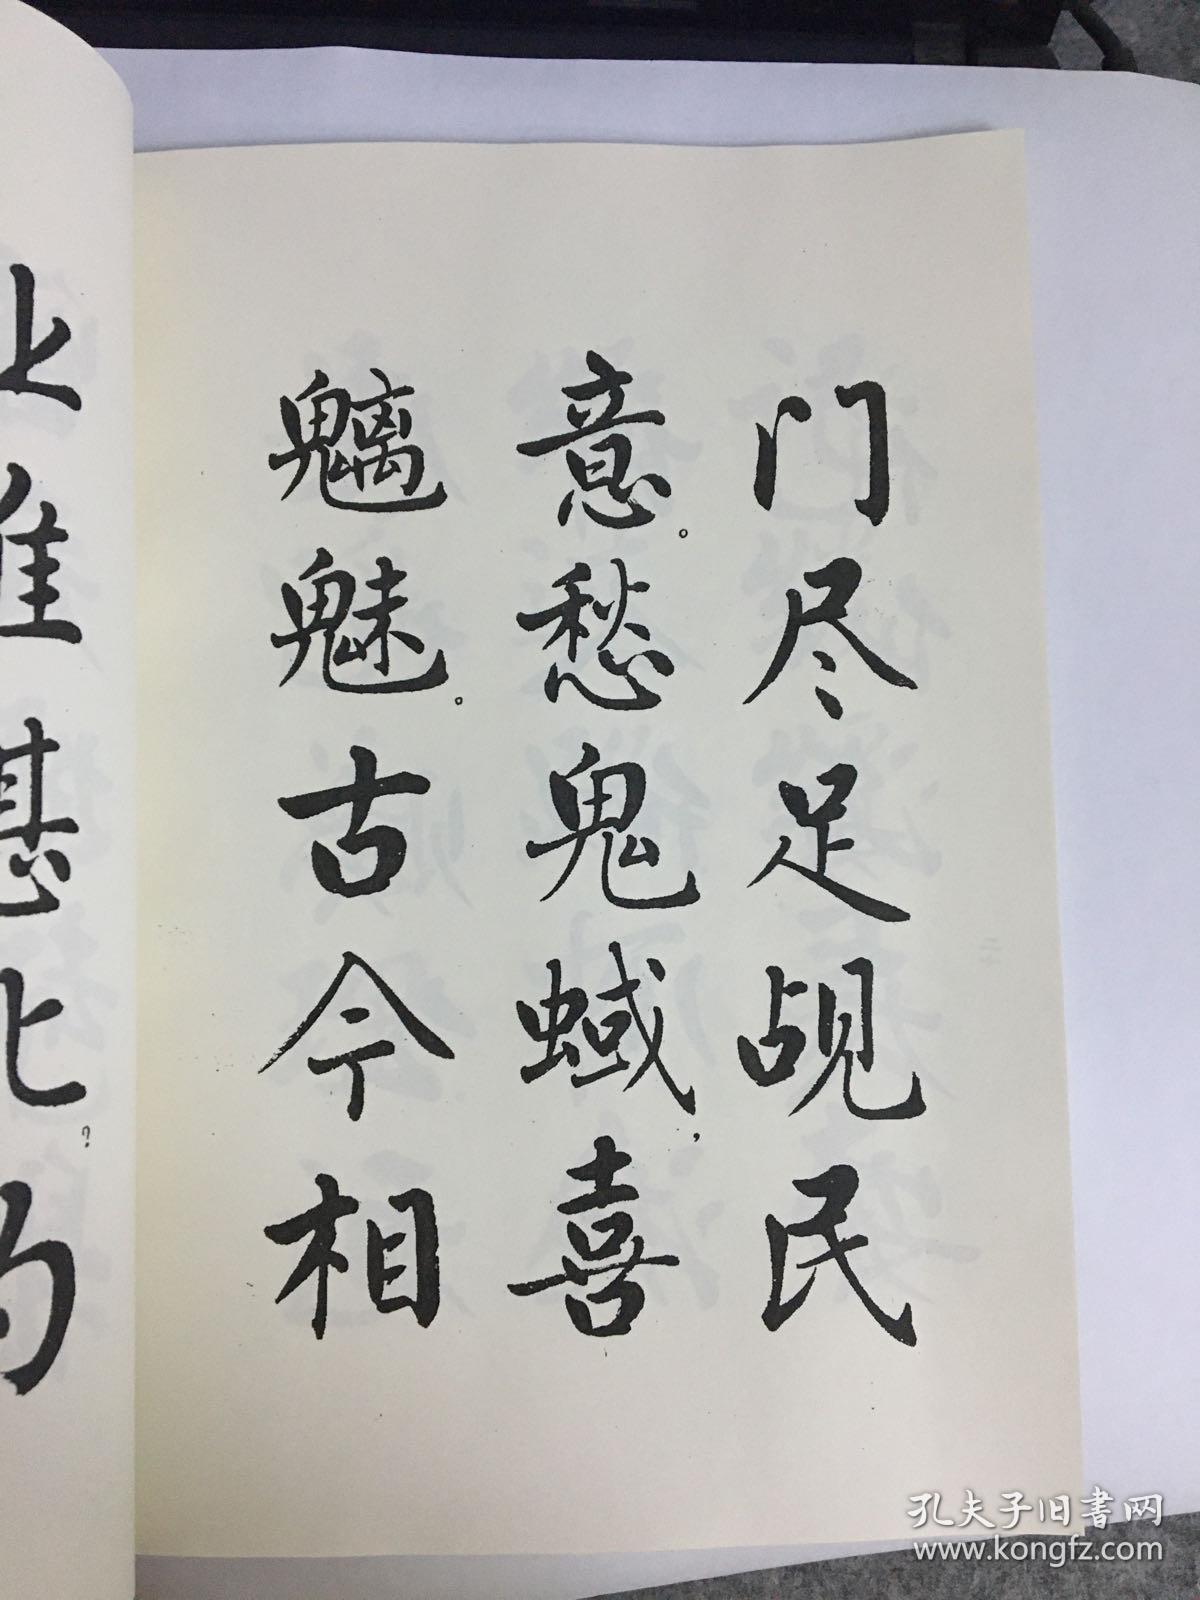 门尽足觇民
意。愁鬼蜮，喜
魑魅。古今相
准
甚
孔夫子旧书网
www.kongfz.com